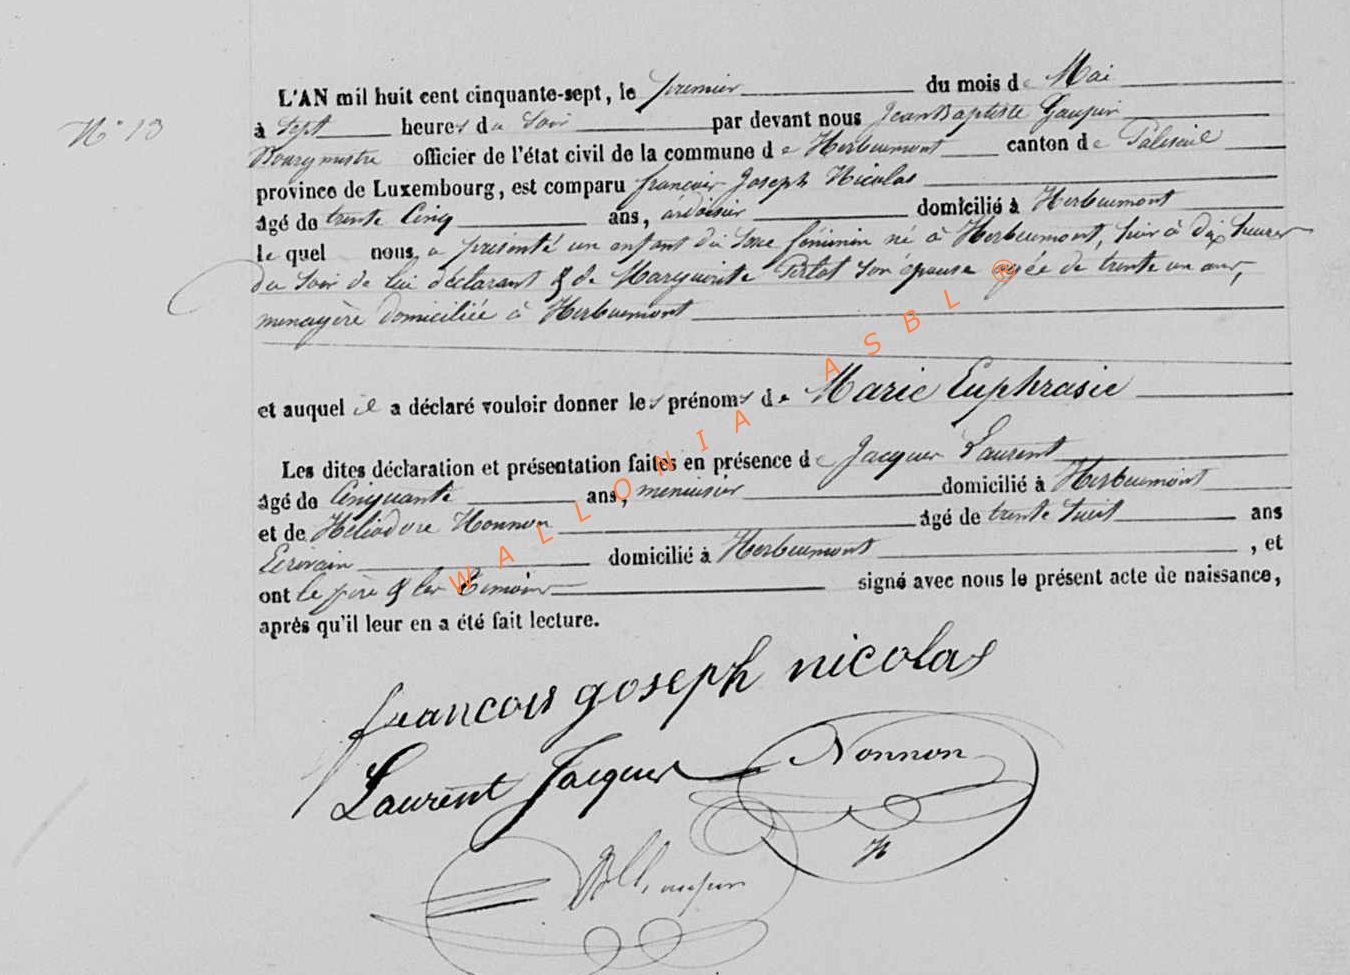 N° 13
L'AN mil huit cent cinquante-sept, le premier du mois de Mai
à sept heures du soir par devant nous Jean Baptiste Gaupin
Bourgmestre officier de l'état civil de la commune de Herbeumont canton de Paliseul
province de Luxembourg, est comparu françois Joseph Nicolas
âgé de trente cinq ans, ardoisier domicilié à Herbeumont
le quel nous a présenté un enfant du sexe féminin né à Herbeumont, hier à dix heures
du soir de lui déclarant & de Marguerite Pierlot son épouse agée de trente un ans,
menagère domiciliée à Herbeumont
et auquel il a déclaré vouloir donner les prénoms de Marie Euphrasie
Les dites déclaration et présentation faites en présence de Jacques Laurent
âgé de Cinquante ans, menuisier domicilié à Herbeumont
et de Héliodore Nonnon âgé de trente huit ans
Ecrivain domicilié à Herbeumont, et
ont le père & les Témoins signé avec nous le présent acte de naissance,
après qu'il leur en a été fait lecture.
francois goseph nicolas
Laurent Jacques Nonnon
H
WALLONIA ASBL ®